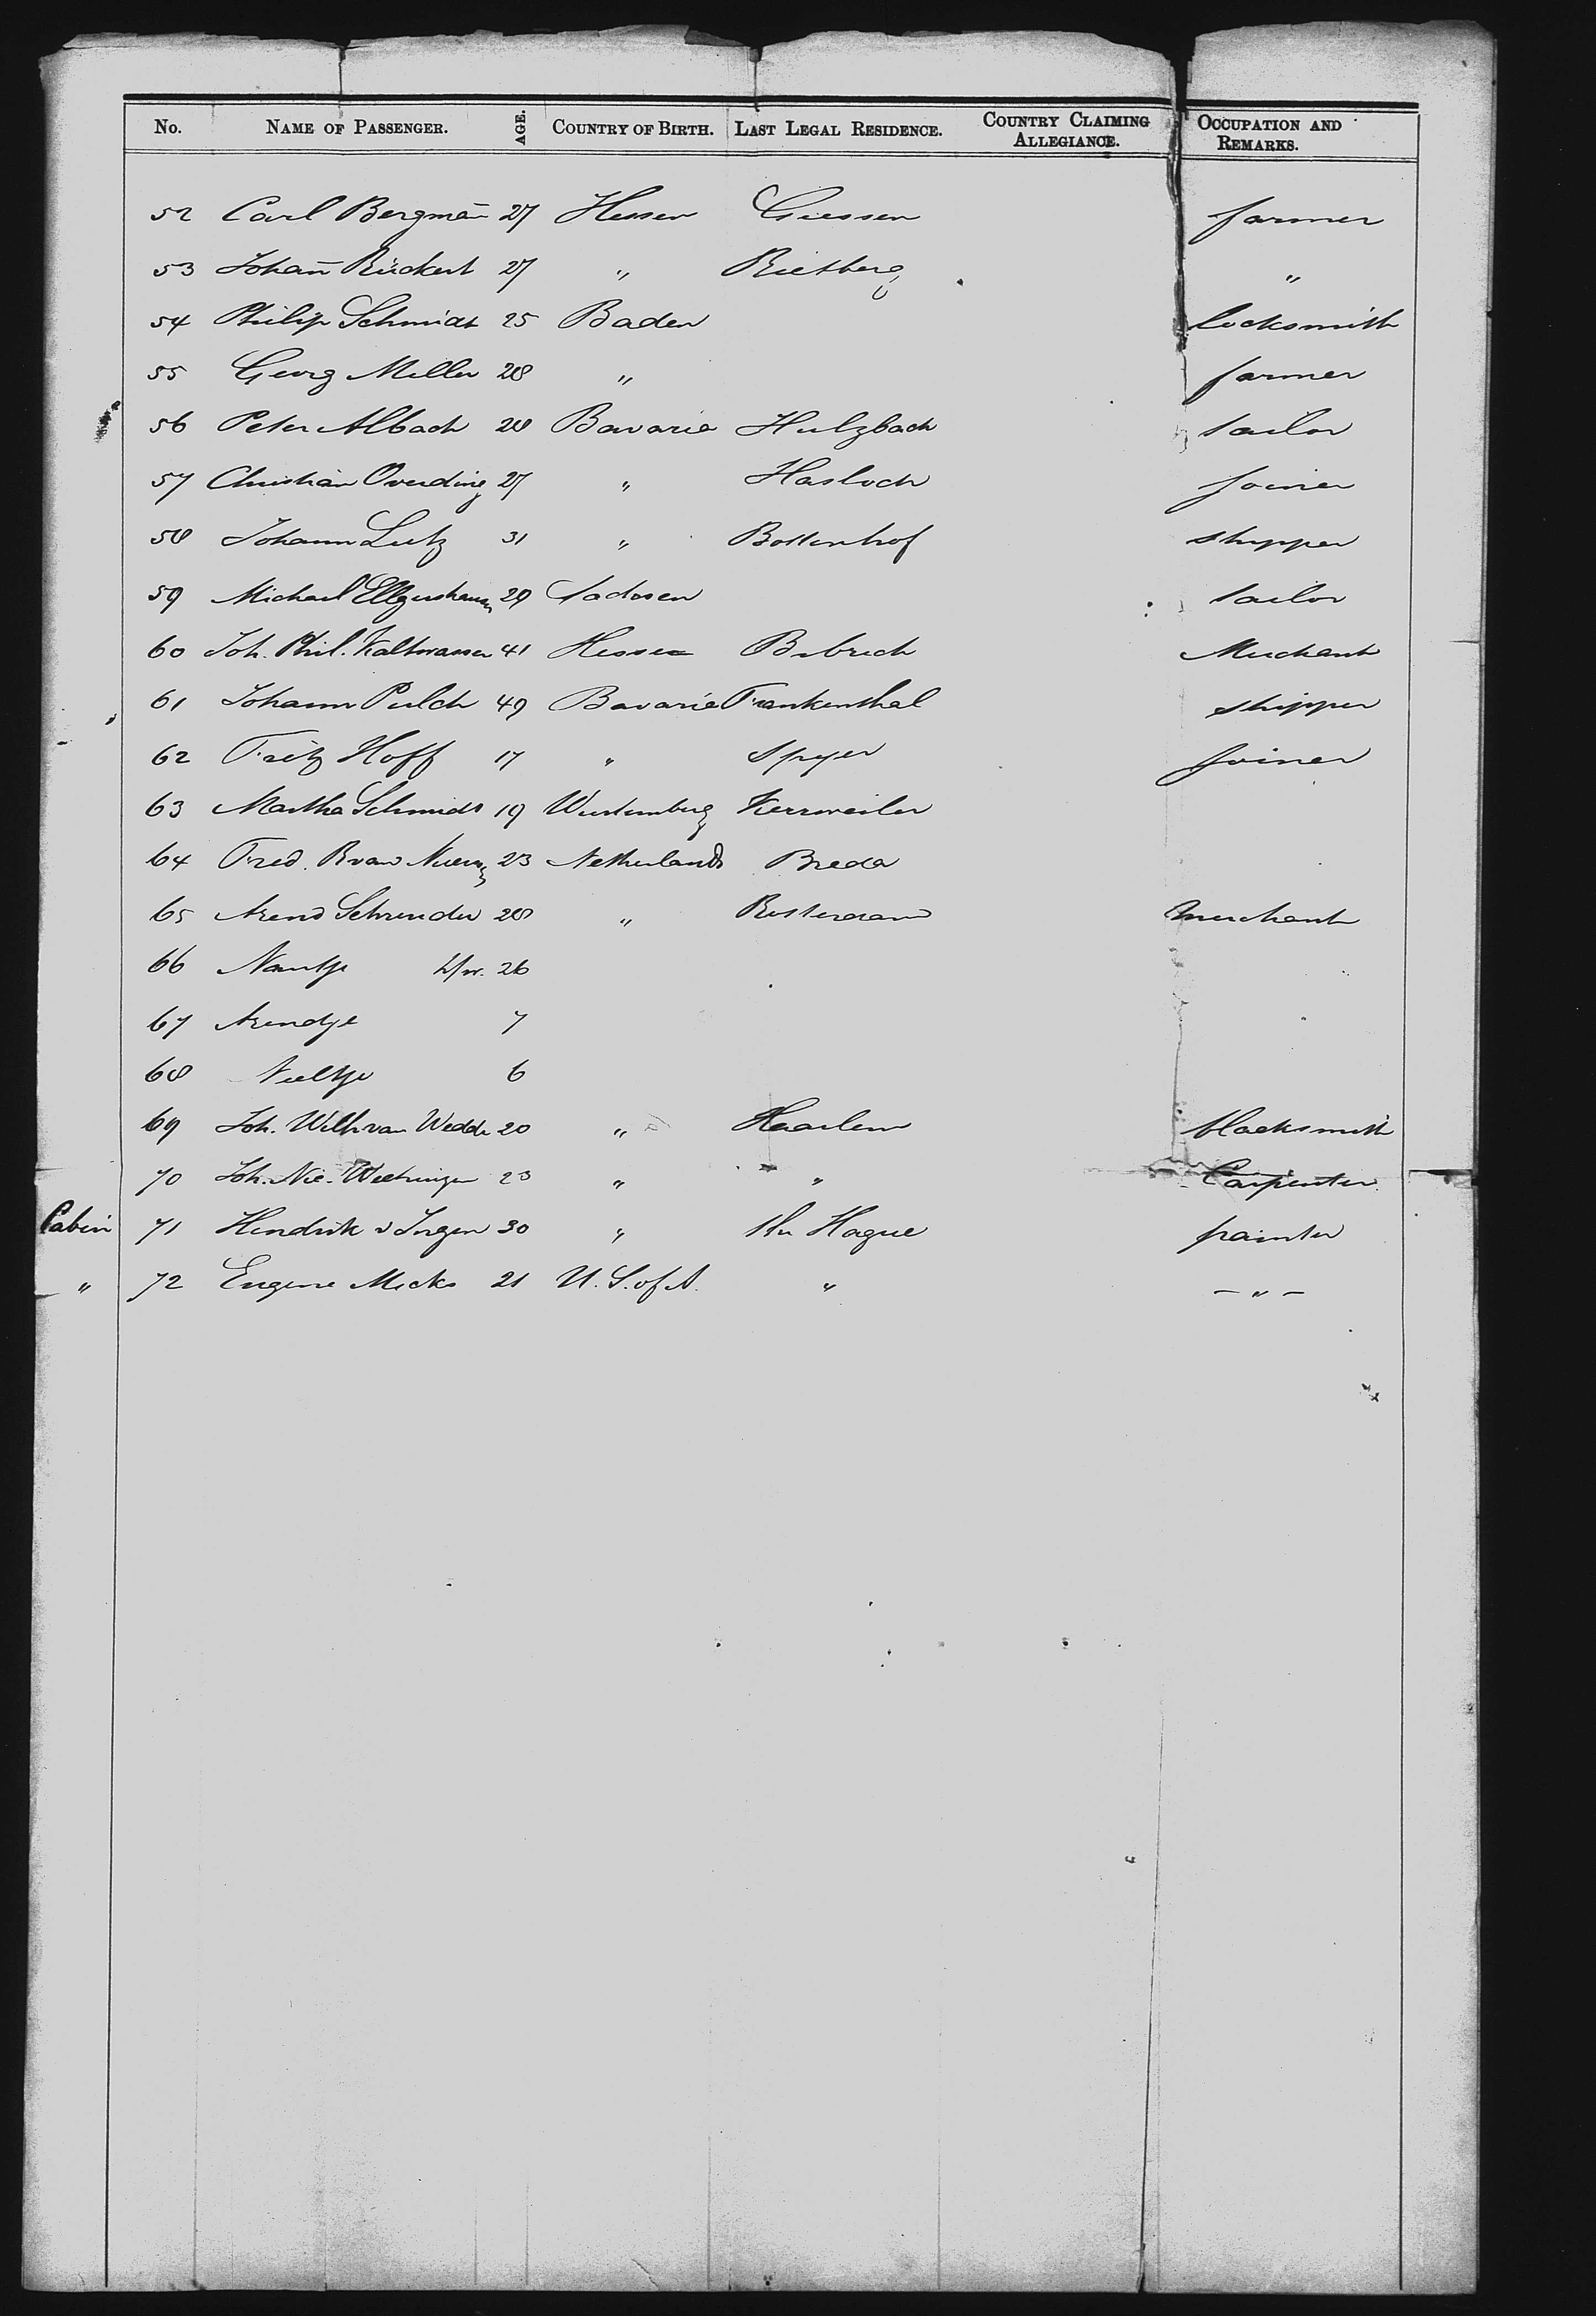 No. NAME OF PASSENGER. AGE. COUNTRY OF BIRTH. LAST LEGAL RESIDENCE. COUNTRY CLAIMING ALLEGIANCE. OCCUPATION AND REMARKS.
52 Carl Bergman̄ 27 Hessen Giessen farmer
53 Johan̄ Rückert 27 " Rietberg "
54 Philip Schmidt 25 Baden locksmith
55 Georg Miller 28 " farmer
56 Peter Albach 28 Bavaria Hulzbach tailor
57 Christian Overding 27 " Hasloch joiner
58 Johann Lutz 31 " shipper
59 Michael 29 Sachsen tailor
60 Joh. Phil. Kaltwasser 41 Hessen Bibrich Merchant
61 Johann Pulch 49 Bavaria Frankenthal shipper
62 Fritz Hoff 17 " Speyer joiner
63 Martha Schmidt 19 Wurtemberg Kerrweiler
64 Fred. R van 23 Netherlands Breda
65 Arend Schreuder 28 " Rotterdam merchant
66 Nantje h/w. 26
67 Arendje 7
68 Neeltje 6
69 Joh. Wilh van Wedde 20 " Haarlem blacksmith
70 Joh. Nic. 23 " " Carpenter
Cabin 71 Hendrik v Ingen 30 " the Hague painter
" 72 Eugene Meeks 21 U. S. of A. " - " -